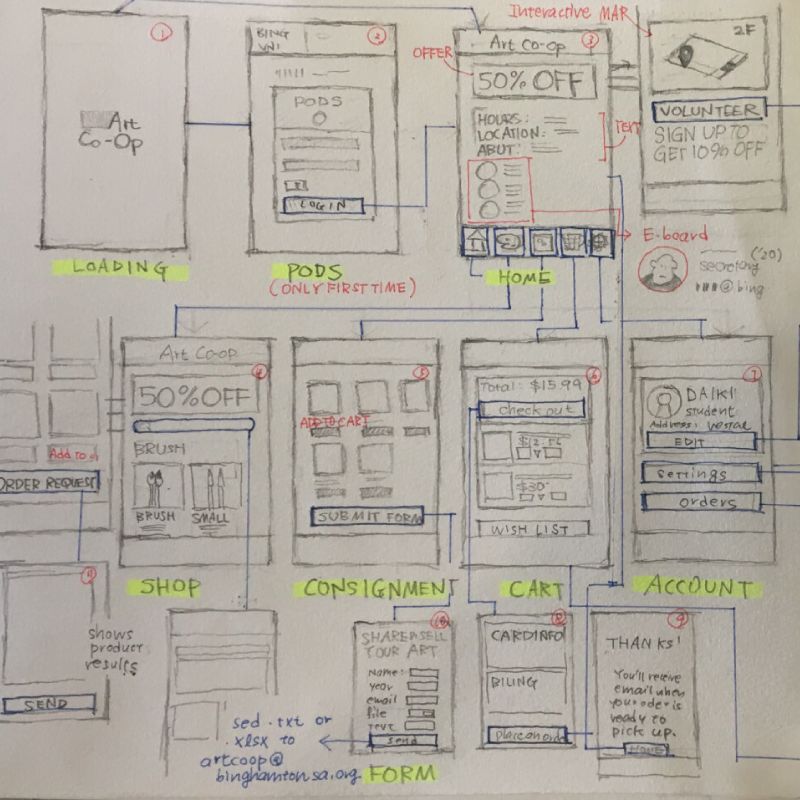 Interactive MAP
1
Art
Co-Op
LOADING
BING
UNI
2
PODS
LOGIN
PODS
(ONLY FIRST TIME)
OFFER
Art Co-Op
3
50% OFF
HOURS:
LOCATION:
ABUT:
TEXT
HOME
2F
VOLUNTEER
SIGN UP TO
GET 10% OFF
E-board
('20)
secretary
@bing
Add to
ORDER REQUEST
Art Co-op
4
50% OFF
BRUSH
BRUSH
SMALL
SHOP
5
ADD TO CART
SUBMIT FORM
CONSIGNMENT
6
Total: $15.99
check out
$12.56
$30
WISH LIST
CART
7
DAIKI
student
Address: vestal
EDIT
settings
orders
ACCOUNT
11
shows
product
results
SEND
10
SHARE&SELL
YOUR ART
Name:
year
email
file
text
send
FORM
sed .txt or
.xlsx to
artcoop@
binghamtonsa.org
8
CARD INFO
BILING
place an order
9
THANKS!
You'll receive
email when
your oder is
ready to
pick up.
HOME